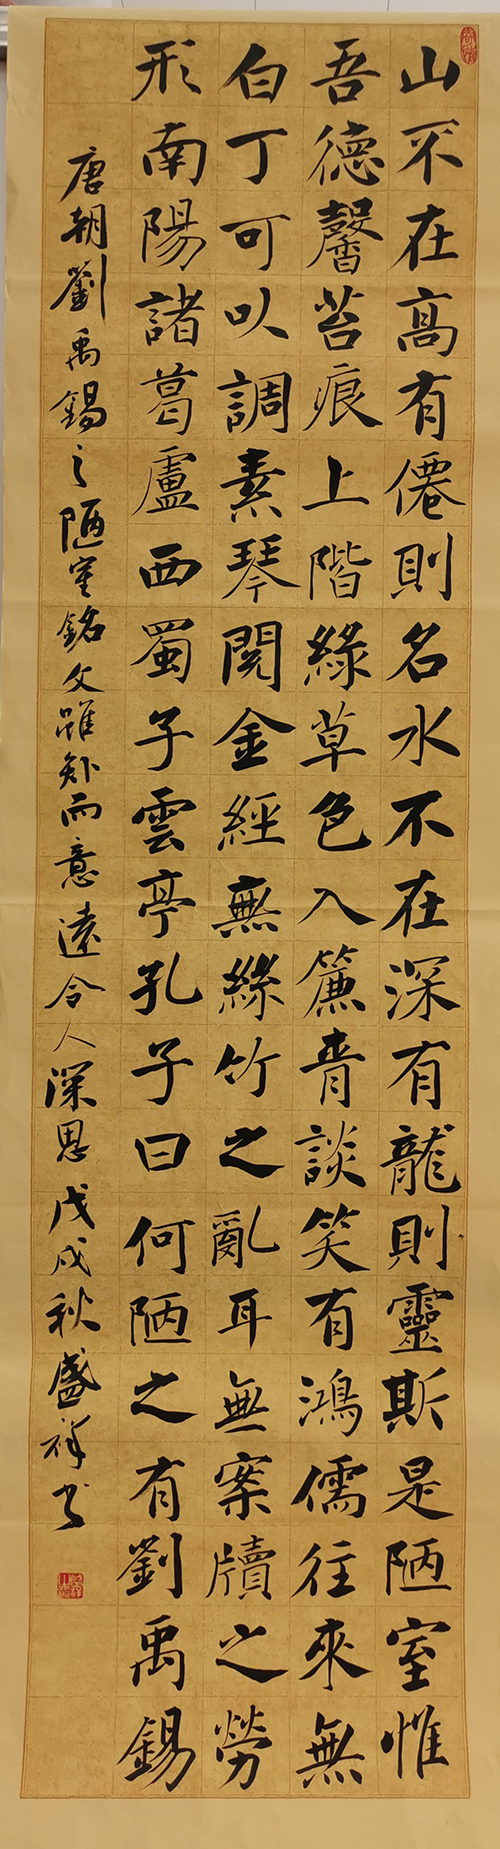 山不在高有僊則名水不在深有龍則靈斯是陋室惟
吾德馨苔痕上階綠草色入簾青談笑有鴻儒往來無
白丁可以調素琴閱金經無絲竹之亂耳無案牘之勞
形南陽諸葛盧西蜀子雲亭孔子曰何陋之有劉禹錫
唐朝劉禹錫之陋室銘文雖短而意遠令人深思戊戌秋盛祥书